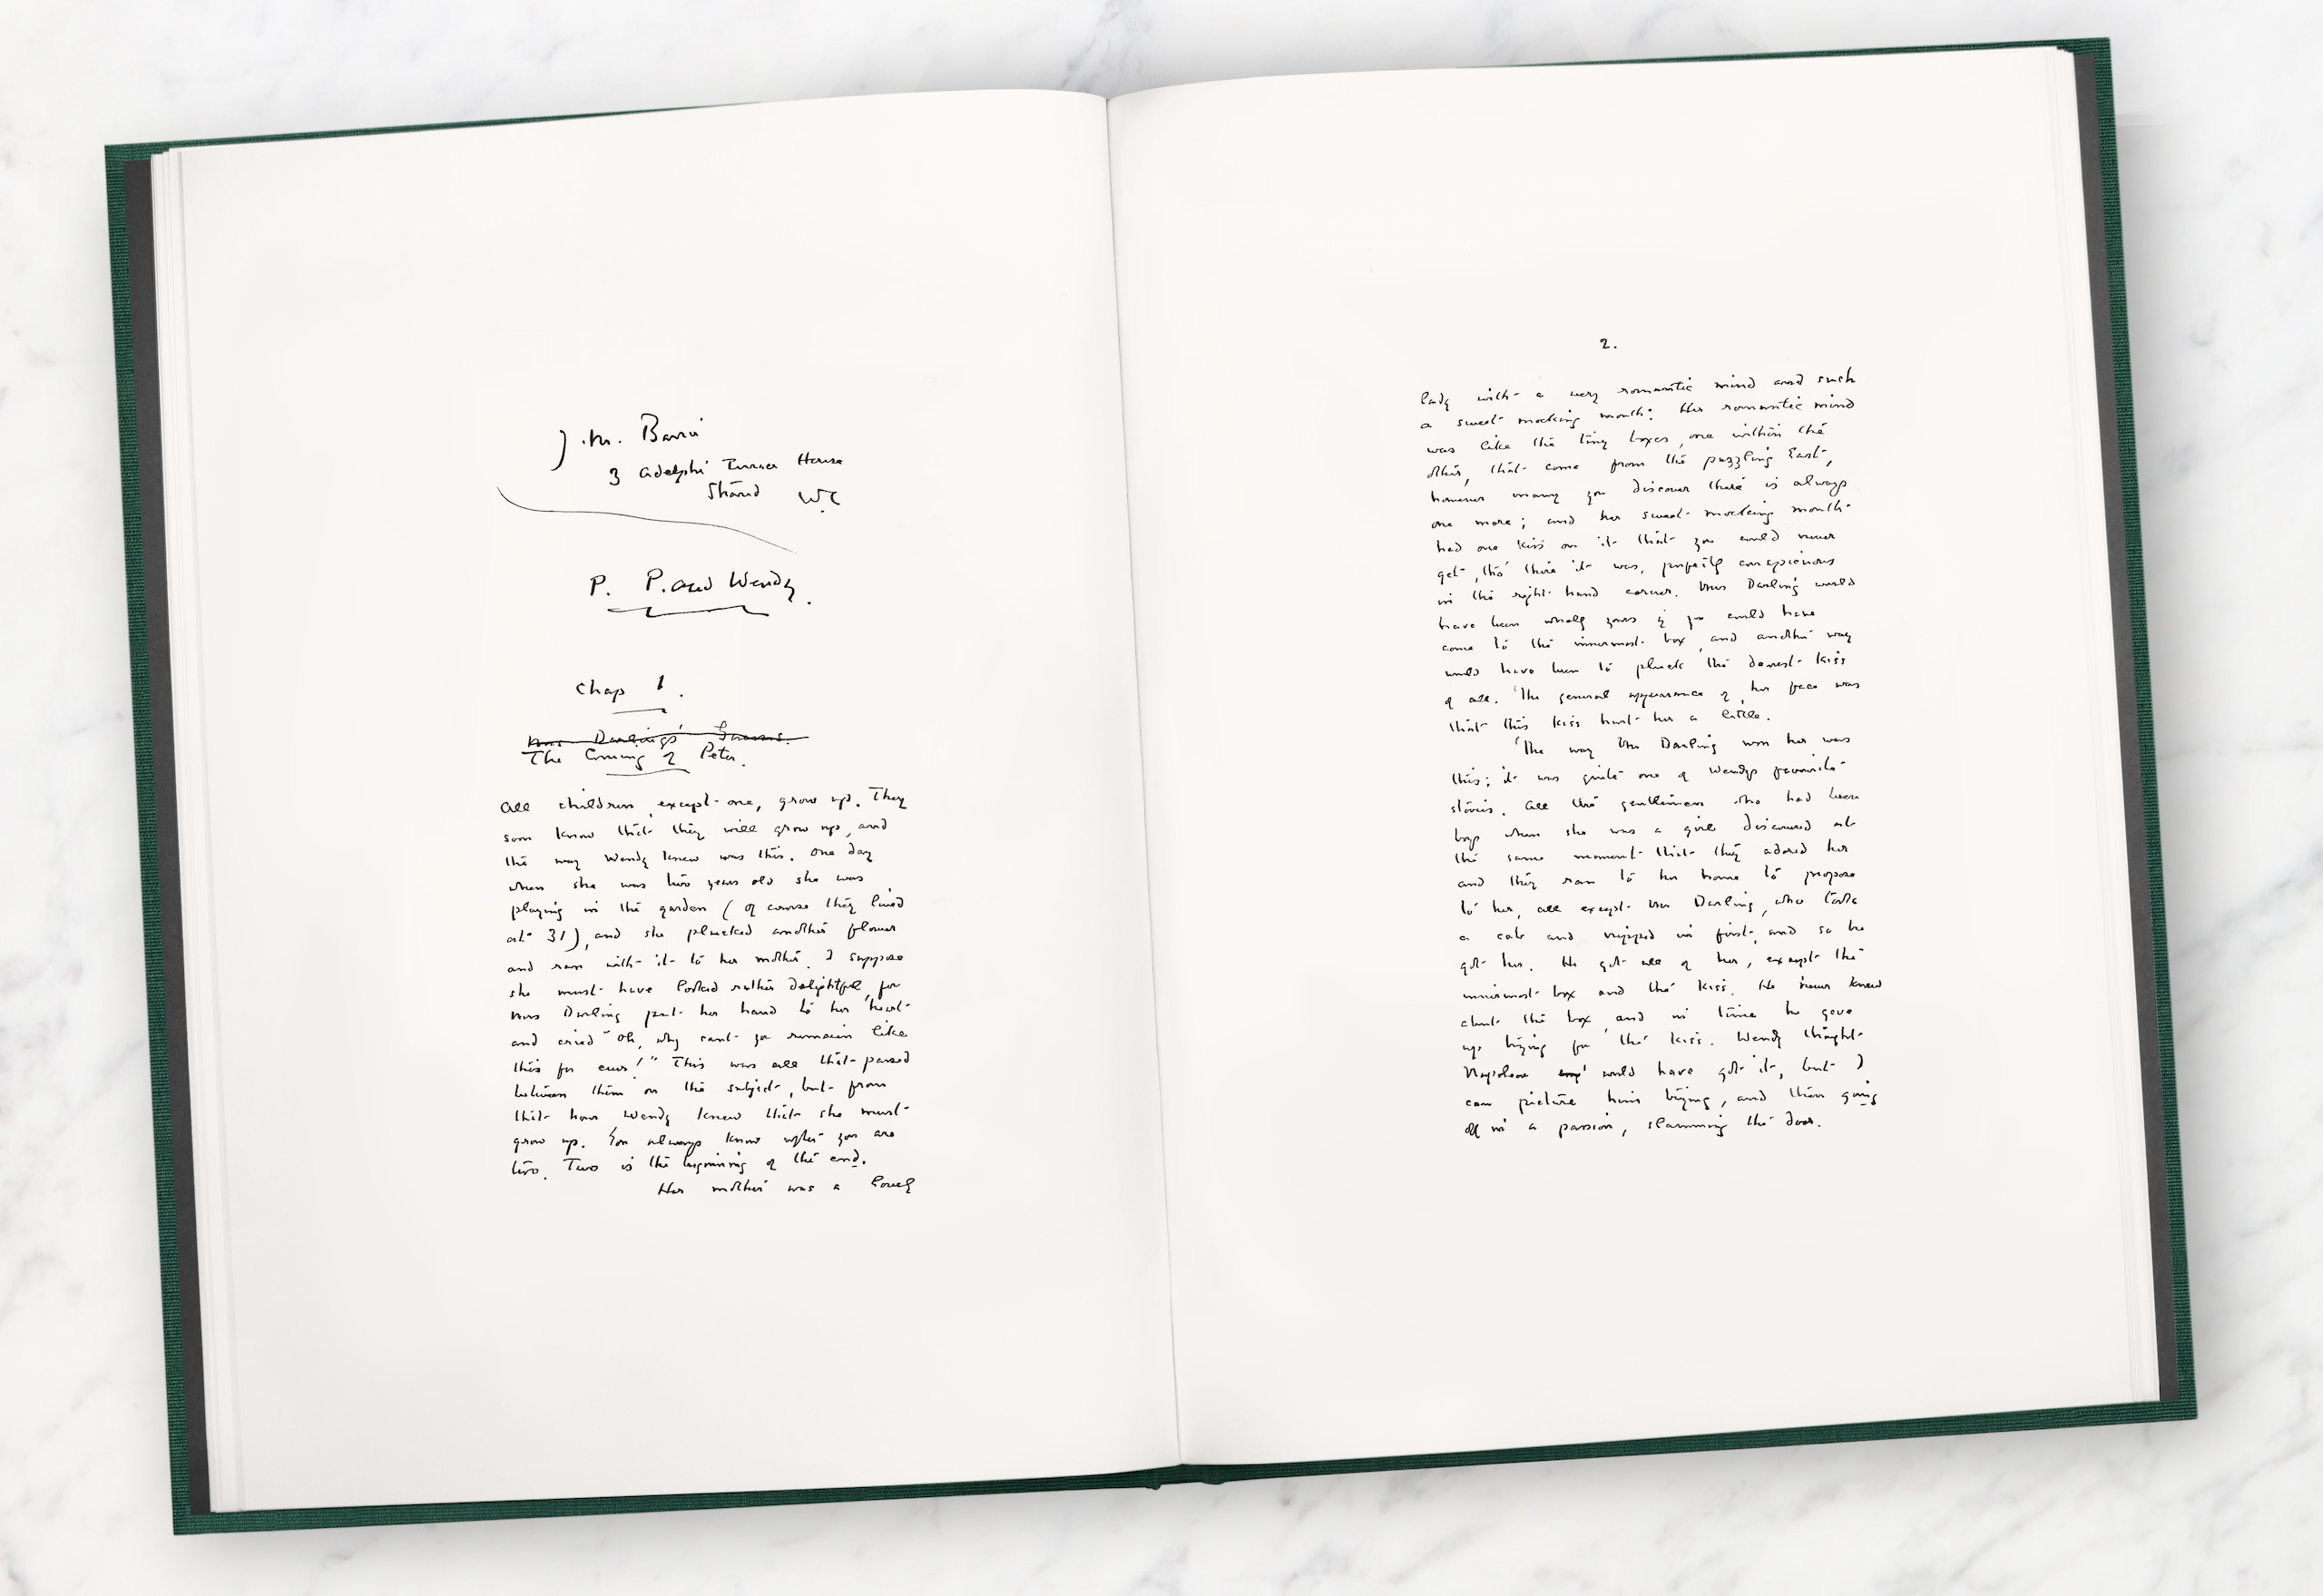 J. M. Barrie
3 Adelphi Terrace House
Strand W.C
P. P. and Wendy.
Chap 1.
Mrs Darling's
The Coming of Peter.
All children, except one, grow up. They
soon know that they will grow up, and
the way Wendy knew was this. One day
when she was two years old she was
playing in the garden (of course they lived
at 31), and she plucked another flower
and ran with it to her mother. I suppose
she must have looked rather delightful, for
Mrs Darling put her hand to her heart
and cried "Oh, why cant you remain like
this for ever!" This was all that passed
between them on the subject, but from
that hour Wendy knew that she must
grow up. You always know after you are
two. Two is the beginning of the end.
Her mother was a lovely
2.
lady with a very romantic mind and such
a sweet mocking mouth. Her romantic mind
was like the tiny boxes, one within the
other, that come from the puzzling East,
however many you discover there is always
one more; and her sweet mocking mouth
had one kiss on it that you could never
get, tho' there it was, perfectly conspicuous
in the right hand corner. Mrs Darling would
have been wholly yours if you could have
come to the innermost box, and another way
would have been to pluck the dearest kiss
of all. The general appearance of her face was
that this kiss hurt her a little.
The way Mr Darling won her was
this; it was quite one of Wendys favourite
stories. All the gentlemen who had been
boys when she was a girl discovered at
the same moment that they adored her
and they ran to her home to propose
to her, all except Mr Darling, who took
a cab and nipped in first, and so he
got her. He got all of her, except the
innermost box and the kiss. He never knew
about the box, and in time he gave
up trying for the kiss. Wendy thought
Napoleon would have got it, but I
can picture him trying, and then going
off in a passion, slamming the door.